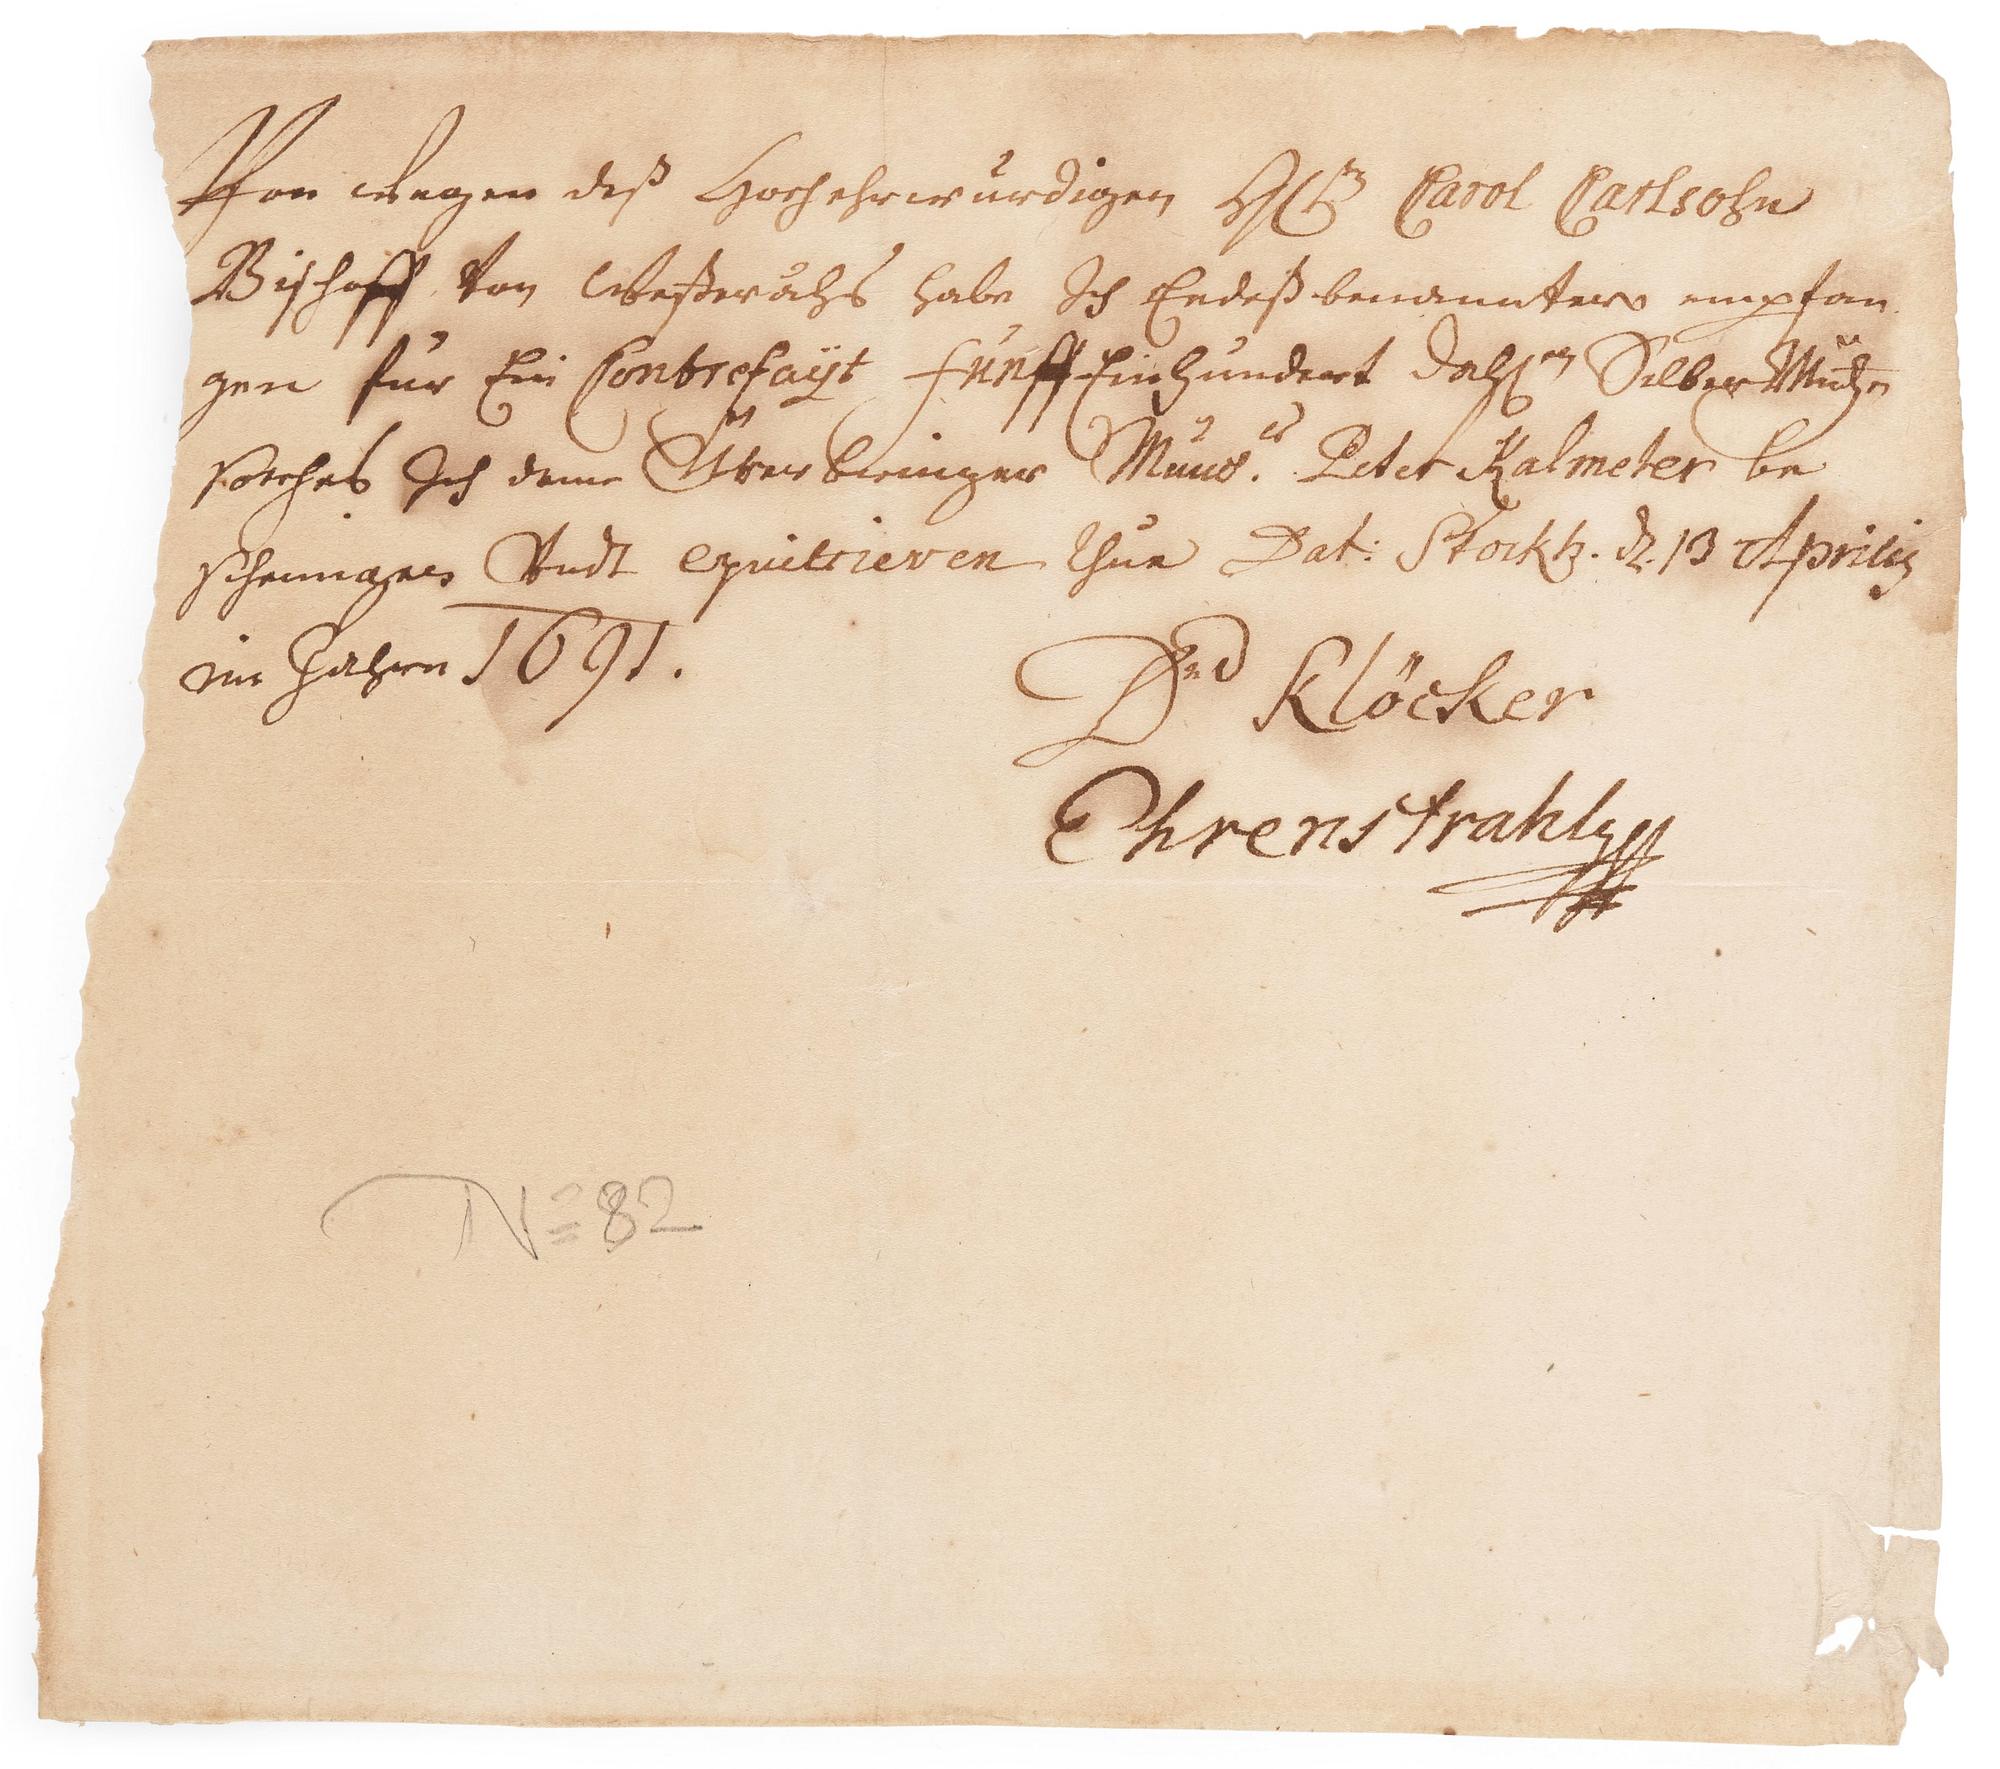 Von wegen deß Hochehrwürdigen H. Carol Carlsohn
Bischoff von Westeråhs habe Ich Endeßbenannter empfan
gen für Ein Contrefayt fünff Einhundert dahl Silber Mütze
solches Ich dem Überbringer Mons. Peter Kalmeter be
scheinigen Undt quitieren thue Dat: Stockh. d. 13 Aprilis
im Jahre 1691.
Dvd Klöcker
Ehrenstrahl
No 82